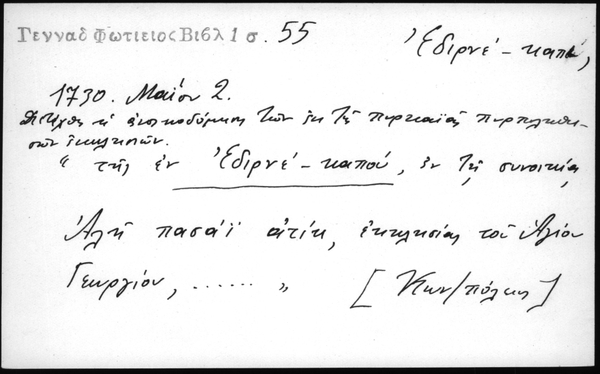 Γενναδ Φωτιειος Βιβλ 1 σ. 55 Ἐδιρνέ-καπού,
1730. Μαΐου 2.
ἡ ἀνοικοδόμησις τῶν ἐκ τῆς πυρκαϊᾶς πυρποληθει-
σῶν ἐκκλησιῶν.
" τῆς ἐν Ἐδιρνέ-καπού, ἐν τῇ συνοικίᾳ
Ἀλῆ πασᾶ ἀτίκ, ἐκκλησίας τοῦ Ἁγίου
Γεωργίου, ...... " [Κων/πόλεως]